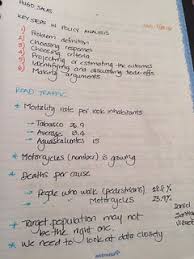 HUGO SALAS
KEY STEPS IN POLICY ANALYSIS
1) Problem definition
2) Choosing responses
3) Choosing criteria
4) Projecting or estimating the outcomes
5) Identifying and discussing trade-offs
6) Making arguments
ROAD TRAFFIC
* Mortality rate per 100k inhabitants
- Tabasco
- Average
- Aguascalientes 15
* Motorcycles (number) is growing
* Deaths per cause
- People who walk (pedestrians)
- Motorcycles
* Target population may not
be the right one.
* We need to look at data closely